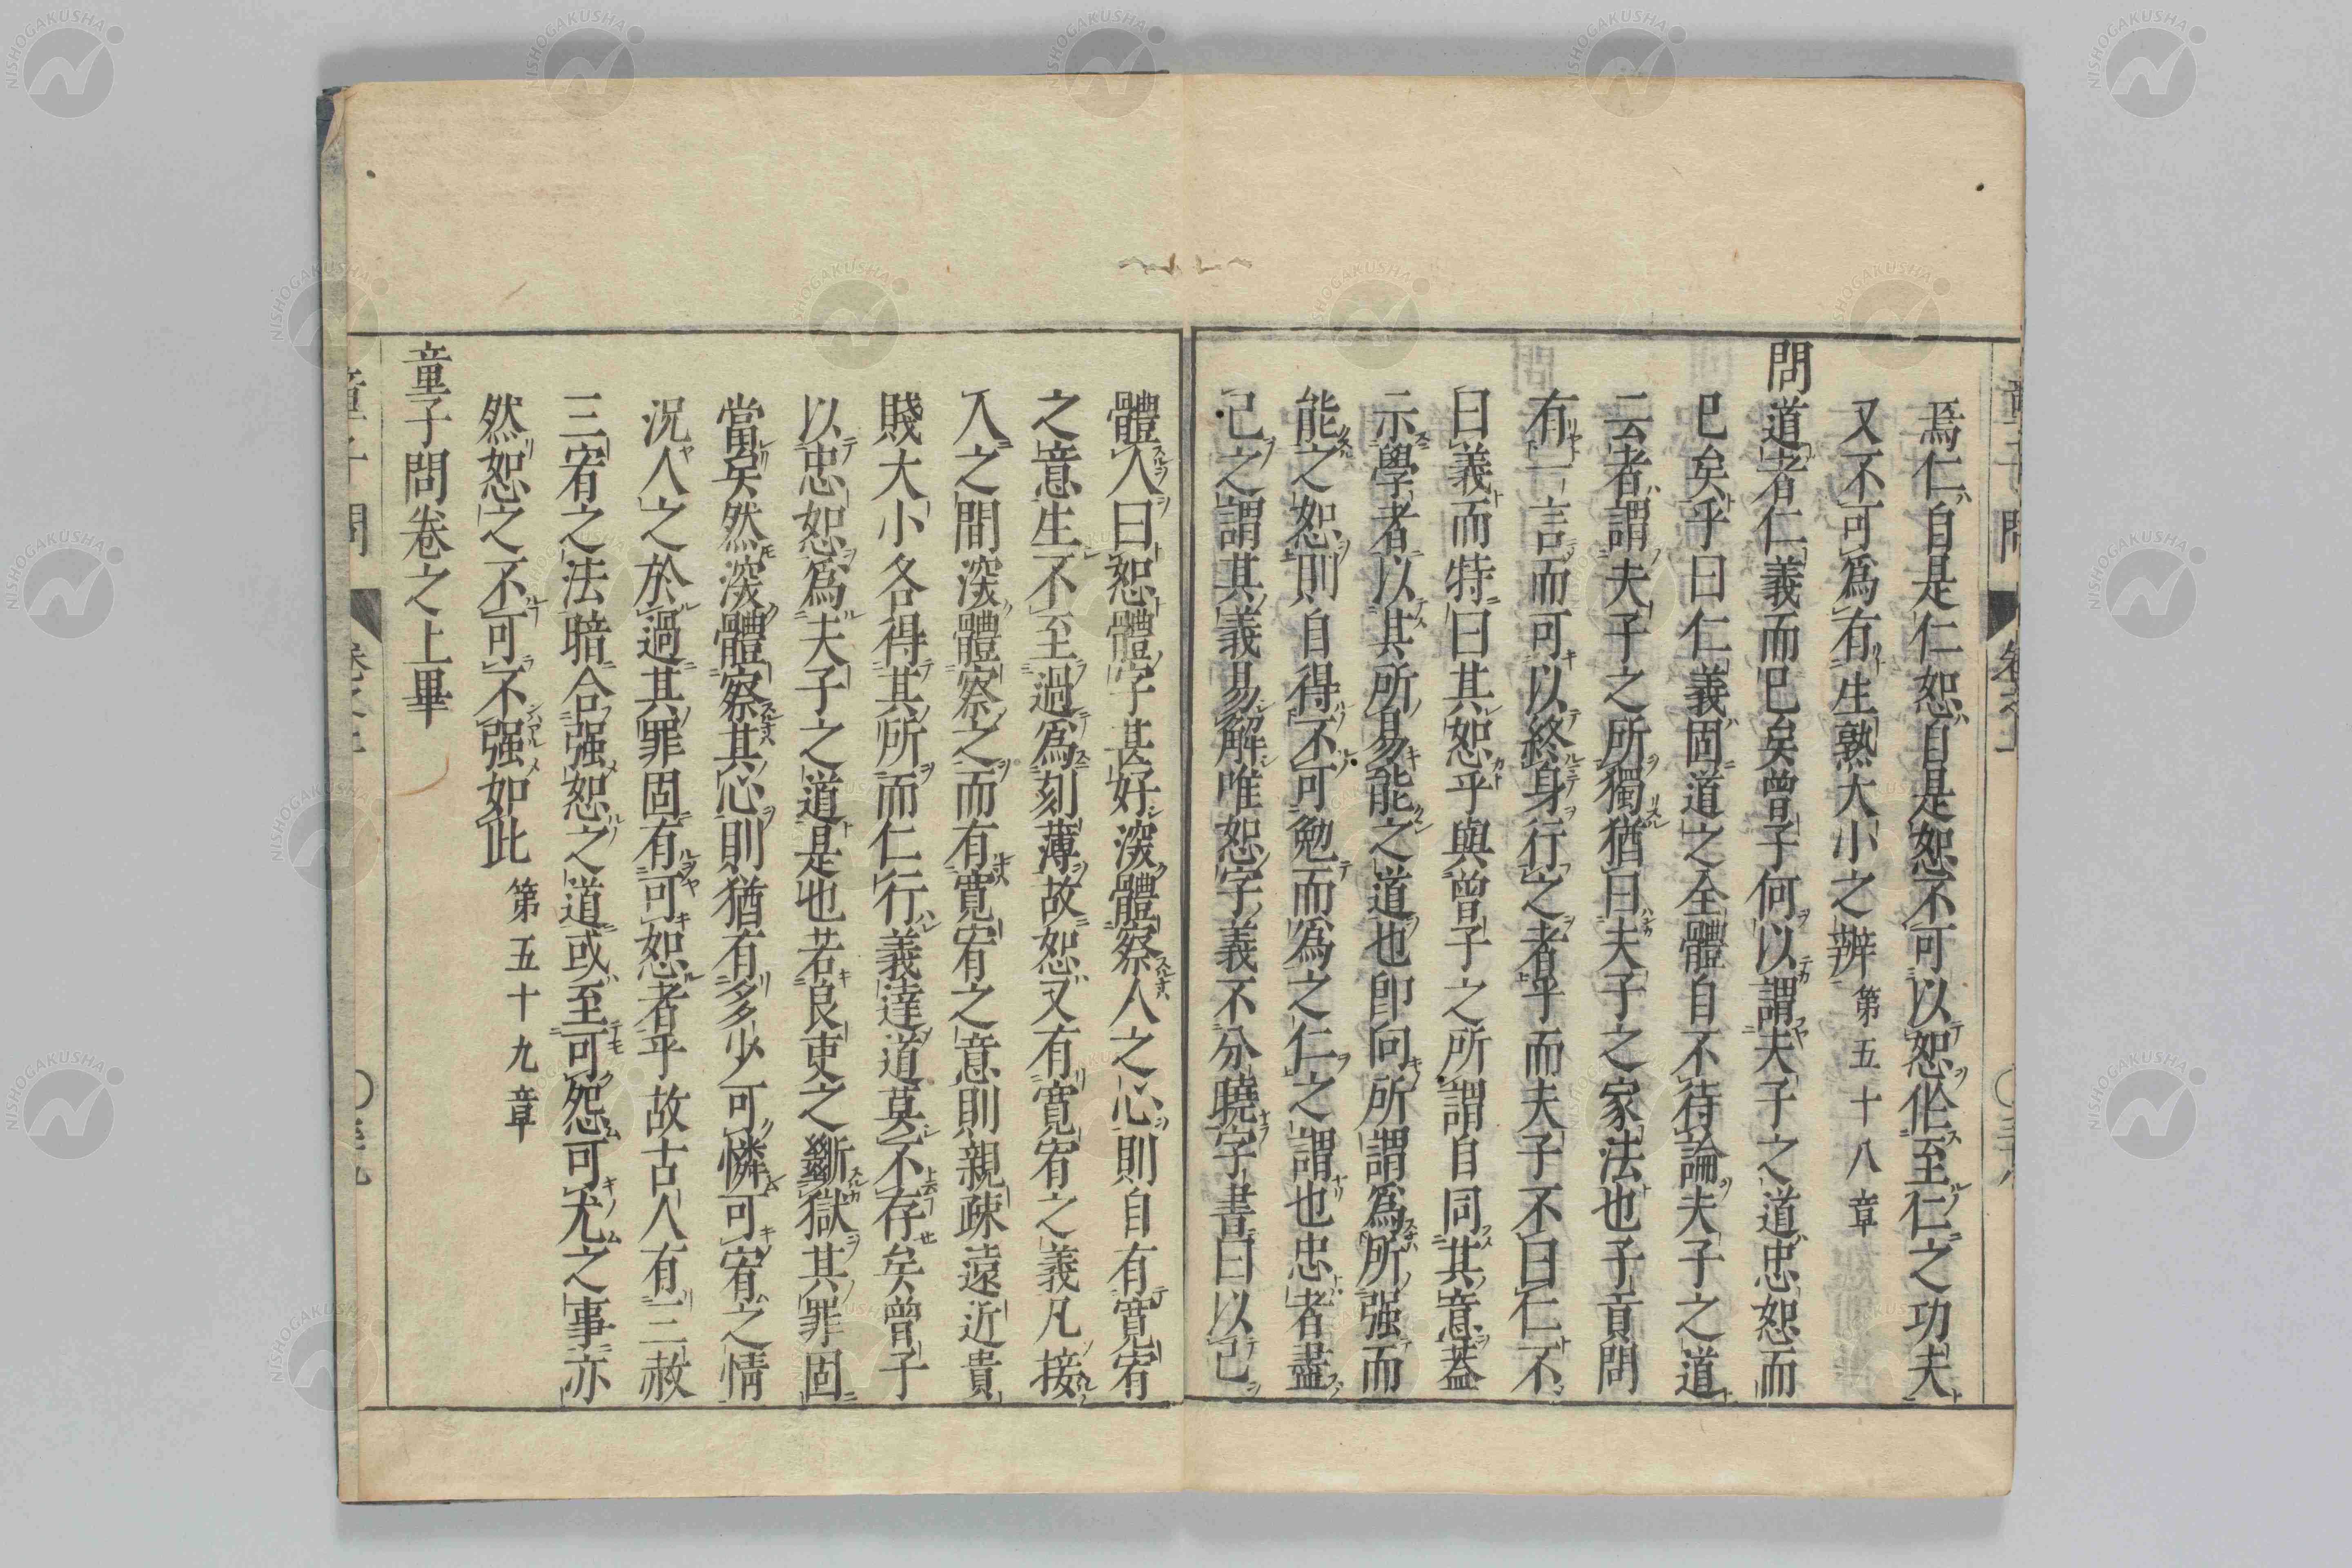 焉仁自是仁恕自是恕不可以恕倫至仁之功夫
又不可爲有生熟大小之辨 第五十八章
問道者仁義而已矣曾子何以謂夫子之道忠恕而
已矣乎曰仁義固道之全體自不待論夫子之道
云者謂夫子之所獨猶曰夫子之家法也子貢問
有一言而可以終身行之者乎而夫子不曰仁不
曰義而特曰其恕乎與曾子之所謂自同其意蓋
示學者以其所易能之道也卽向所謂爲所强而
能之恕則自得不可勉而爲之仁之謂也忠者盡
己之謂其義易解唯恕字義不分曉字書曰以己
體人曰恕體字甚好深體察人之心則自有寬宥
之意生不至過爲刻薄故恕又有寬宥之義凡接
人之間深體察之而有寬宥之意則親疎遠近貴
賤大小各得其所而仁行義達道莫不存矣曾子
以忠恕爲夫子之道是也若良吏之斷獄其罪固
當矣然深體察其心則猶有多少可憐可宥之情
況人之於過其罪固有可恕者乎故古人有三赦
三宥之法暗合强恕之道或至可怨可尤之事亦
然恕之不可不强如此 第五十九章
童子問卷之上畢
童子問